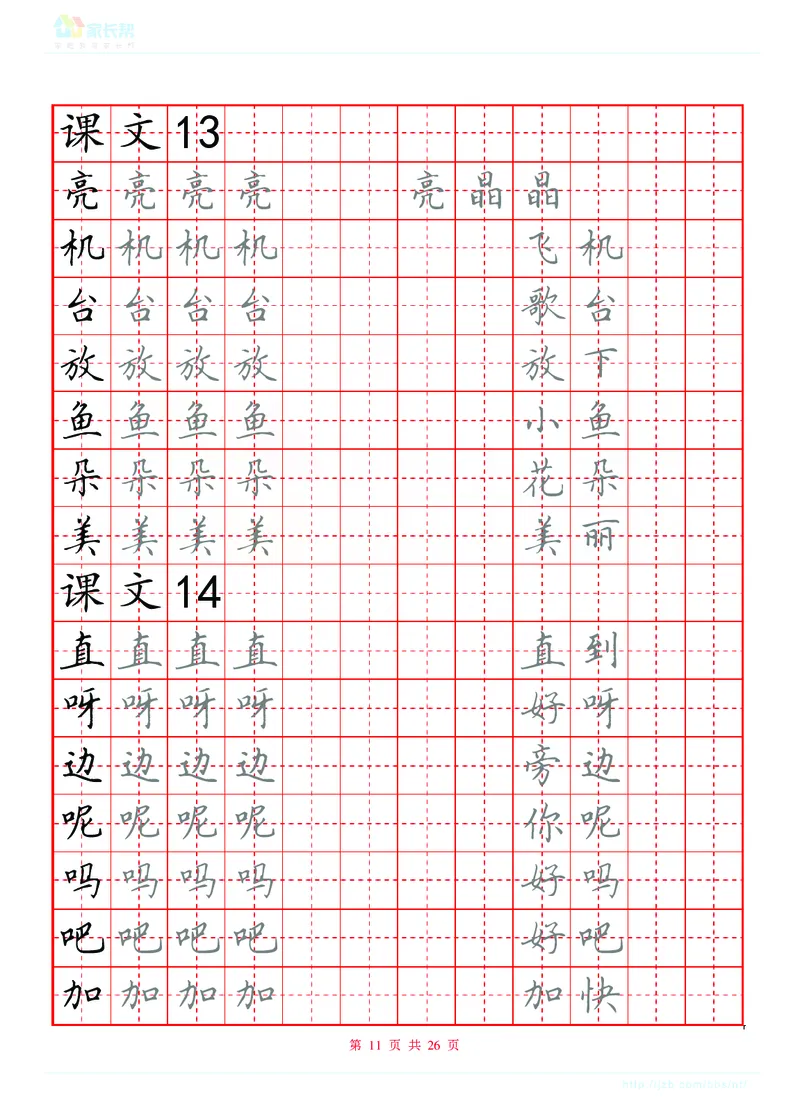 家长帮
课文13
亮亮亮亮 亮晶晶
机机机机 飞机
台台台台 歌台
放放放放 放下
鱼鱼鱼鱼 小鱼
朵朵朵朵 花朵
美美美美 美丽
课文14
直直直直 直到
呀呀呀呀 好呀
边边边边 旁边
呢呢呢呢 你呢
吗吗吗吗 好吗
吧吧吧吧 好吧
加加加加 加快
第 11 页 共 26 页